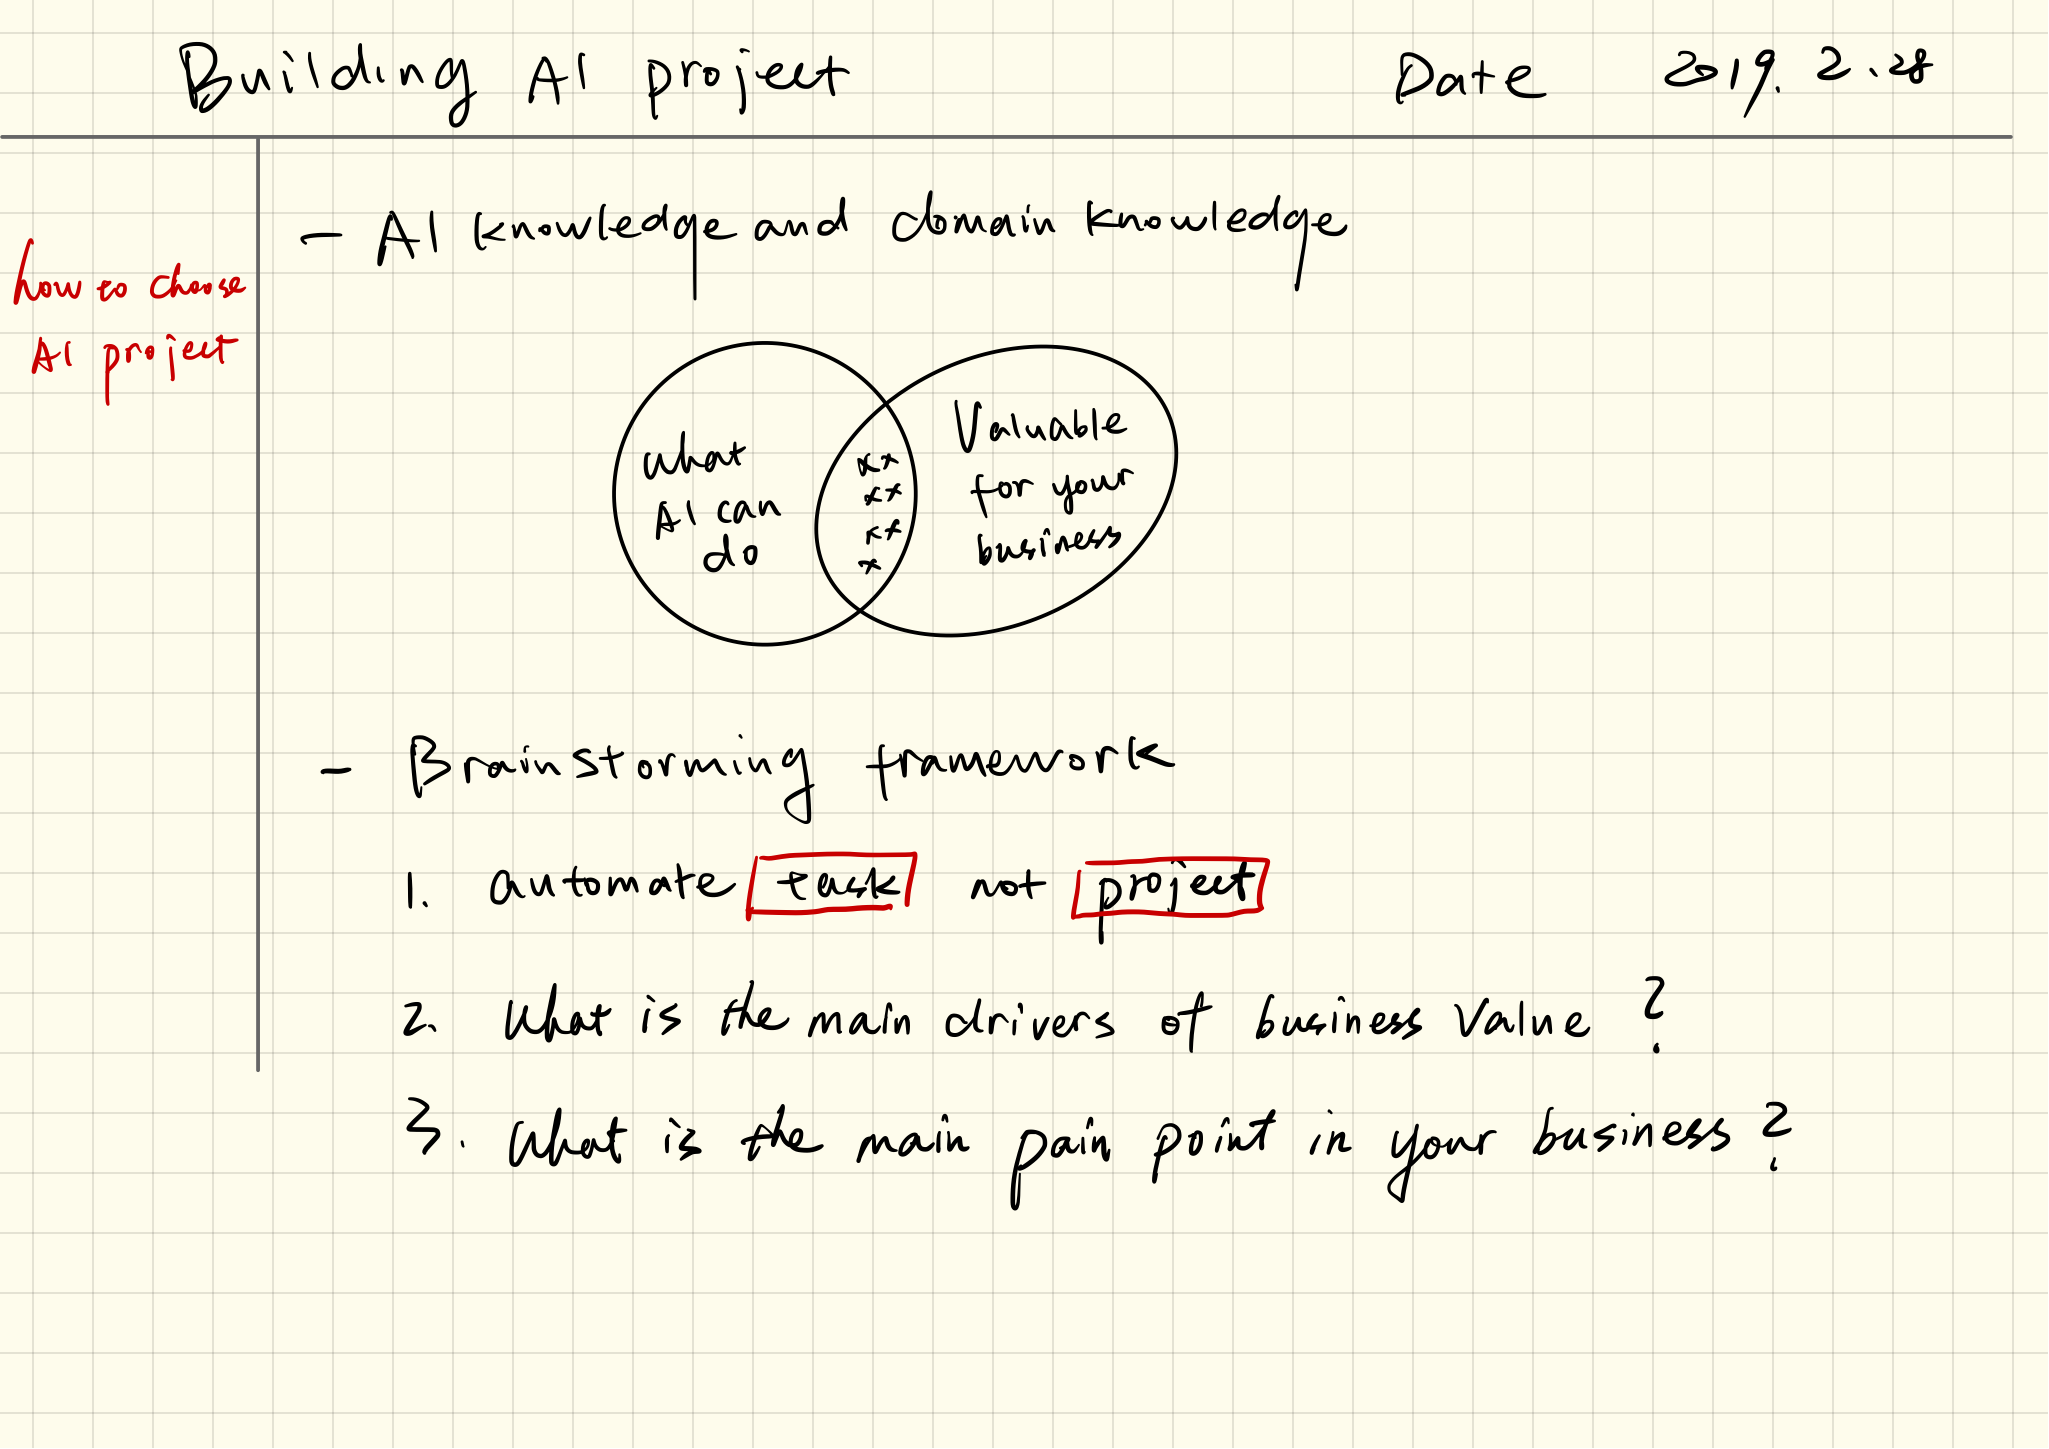 Building AI project Date 2019. 2.28
how to choose
AI project
- AI knowledge and domain knowledge
What
AI can
do
xx
xx
xx
x
Valuable
for your
business
- Brainstorming framework
1. automate task not project
2. What is the main drivers of business Value ?
3. What is the main pain point in your business ?